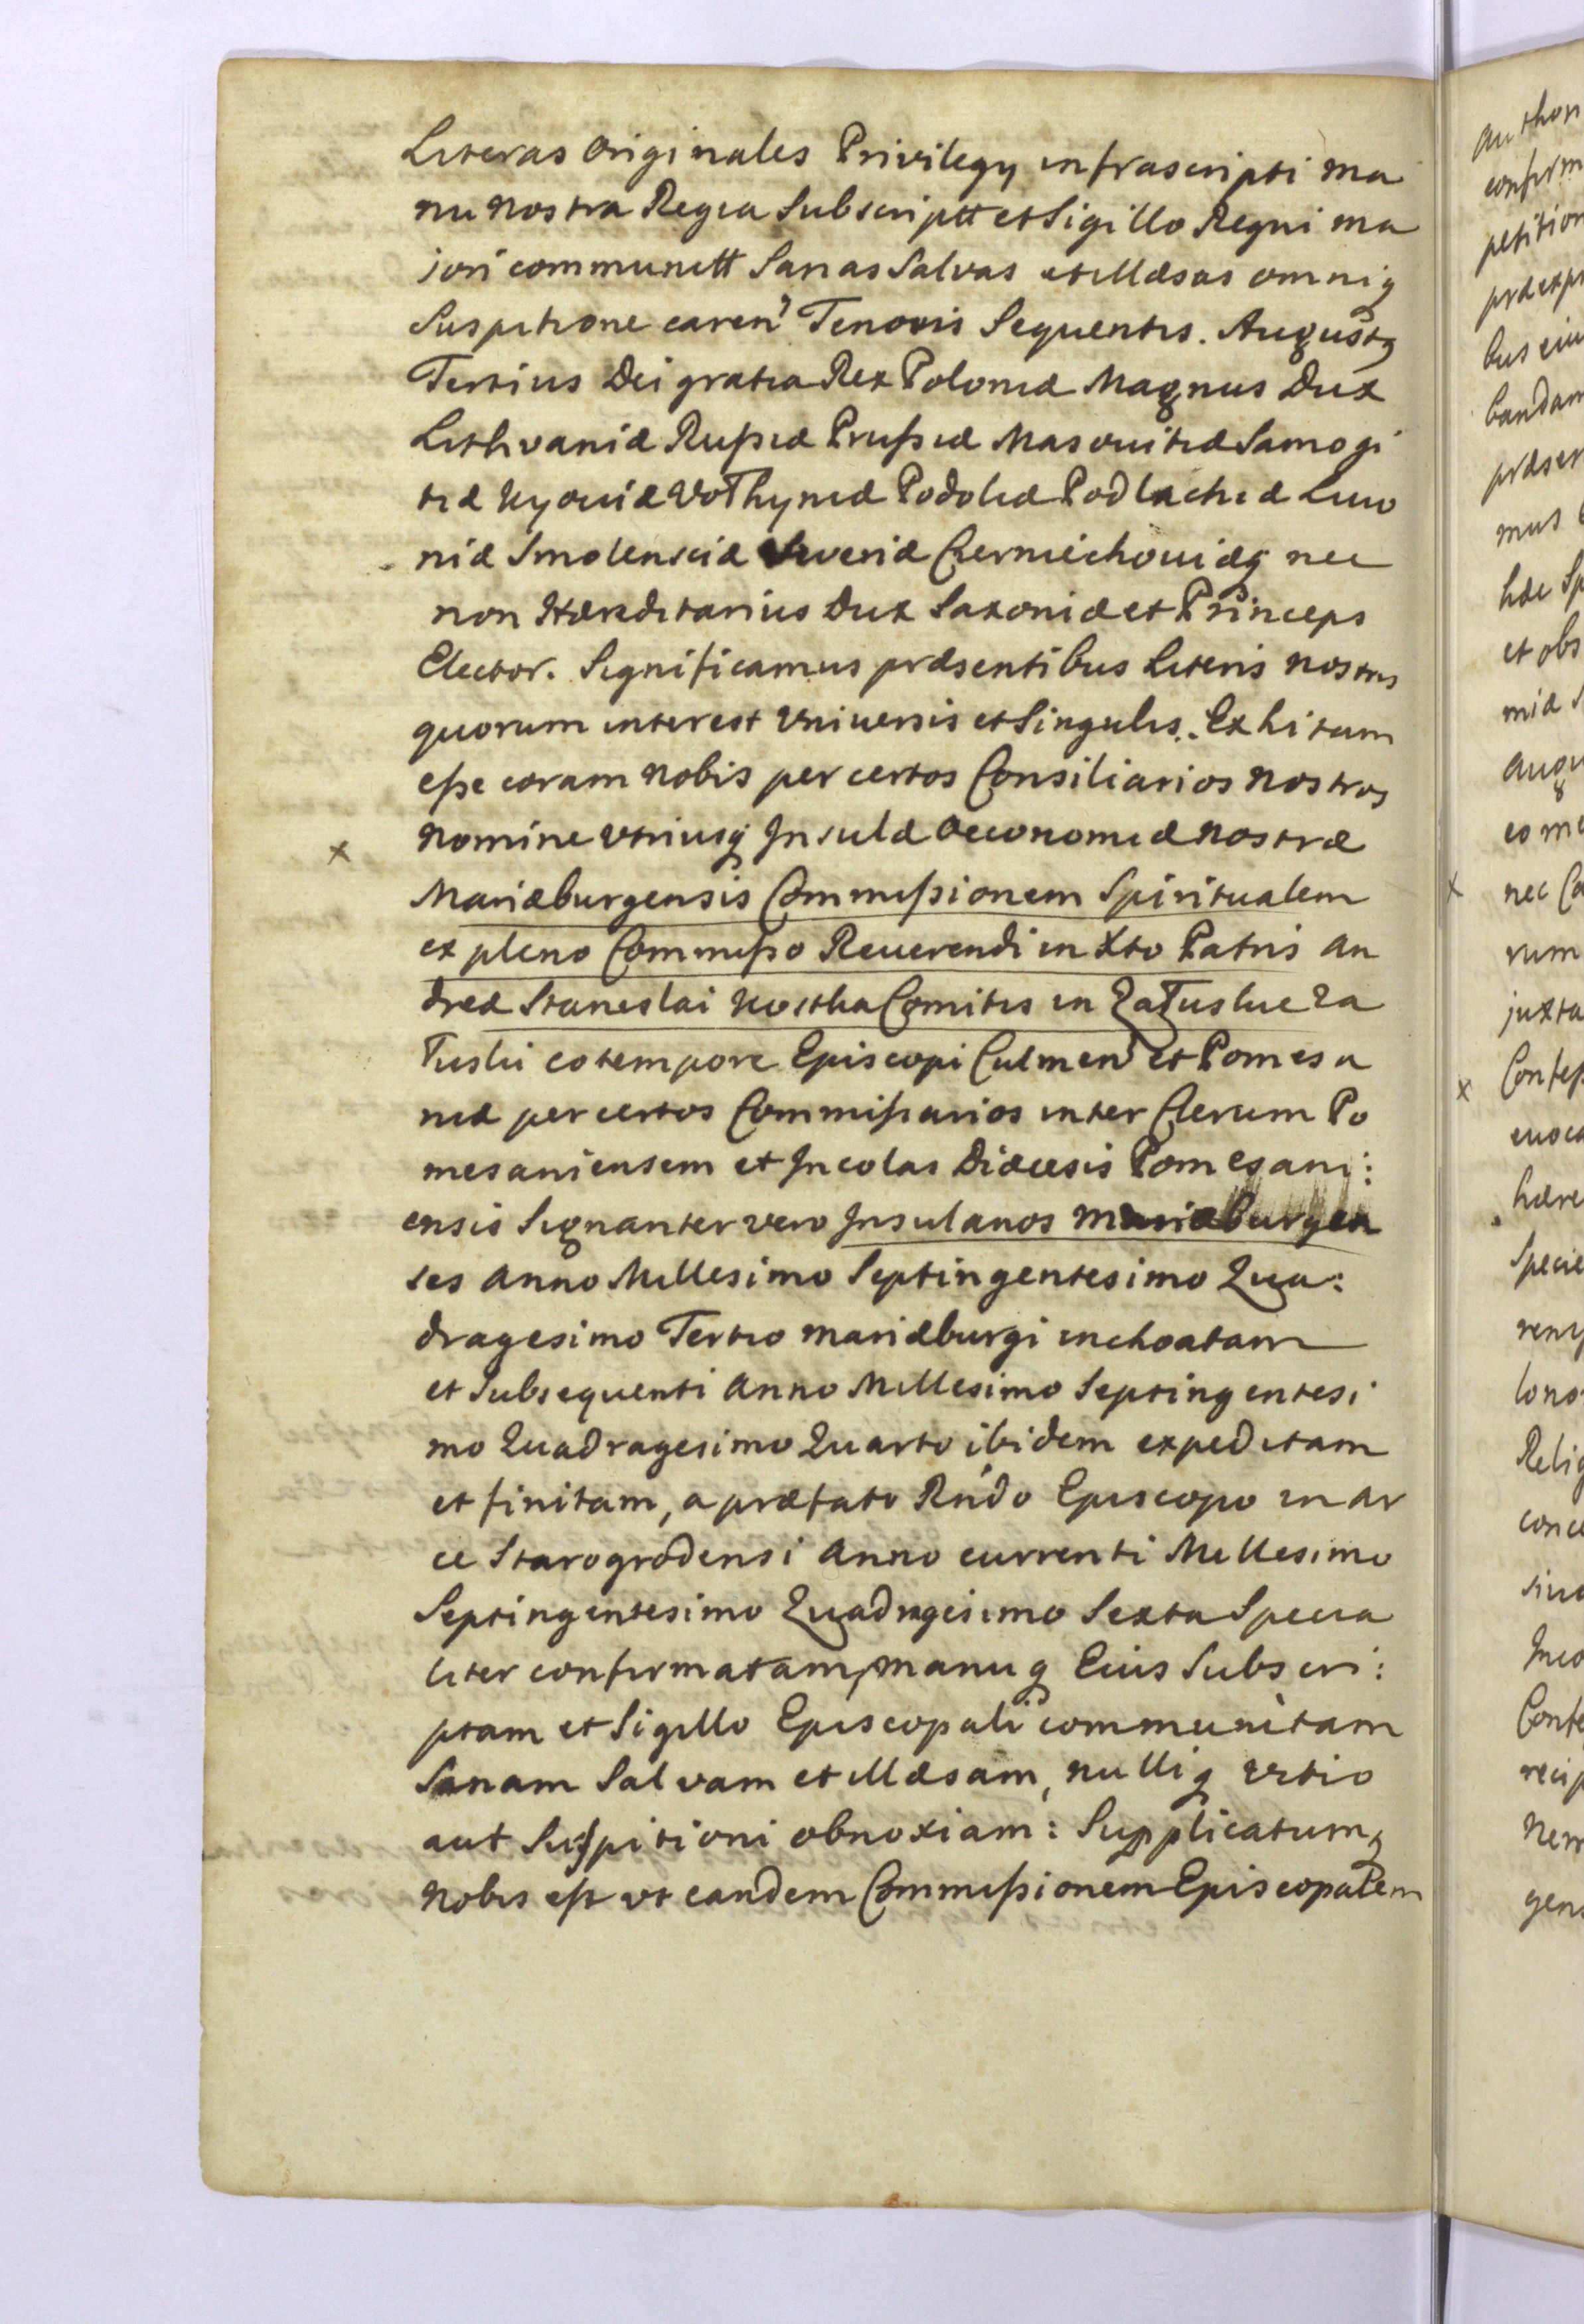 Literas Originales Privilegy infrascripti ma
nu nostra Regia Subscriptt et Sigillo Regni ma
jori communitt Sanas Salvas et illæsas omniq
Suspitione caren' Tenoris Sequentis. Augustq
Tertius Dei gratia Rex Poloniæ Magnus Dux
Lithvaniæ Rußiæ Prußiæ Masovitiæ Samogi
tiæ Kyoviæ Volhyniæ Podoliæ Podlachiæ Livo
niæ Smolensciæ Severiæ Czerniechoviæq nec
non Hæreditarius Dux Saxoniæ et Princeps
Elector. Significamus præsentibus Literis nostris
quorum interest Vniversis et Singulis. Exhitum
eße coram nobis per certos Consiliarios nostros
nomine Vtriusq Insulæ Oeconomiæ nostræ
Mariæburgensis Commißionem Spiritualem
ex pleno Commißo Reuerendi in Xto Patris An
dreæ Stanislai Kostka Comitis in Załuskie Za
łuski eo tempore Episcopi Culmen et Pomesa
niæ per certos Commißarios inter Clerum Po
mesaniensem et Incolas Diæcesis Pomesani:
ensis Signanter vero Insulanos Mariæburgen
ses Anno Millesimo Septingentesimo Qua:
dragesimo Tertio Mariæburgi inchoatam
et Subsequenti Anno Millesimo Septingentesi
mo Quadragesimo Quarto ibidem expeditam
et finitam, a præfato Rndo Episcopo in Ar
ce Starogrodensi Anno currenti Millesimo
Septingentesimo Quadragesimo Sexto Specia
liter confirmatam, manuq Eius Subscri:
ptam et Sigillo Episcopali communitam
Sanam Salvam et illæsam, nulliq vitio
aut Suspitioni obnoxiam: Supplicatumq
nobis est vt eandem Commißionem Episcopalem